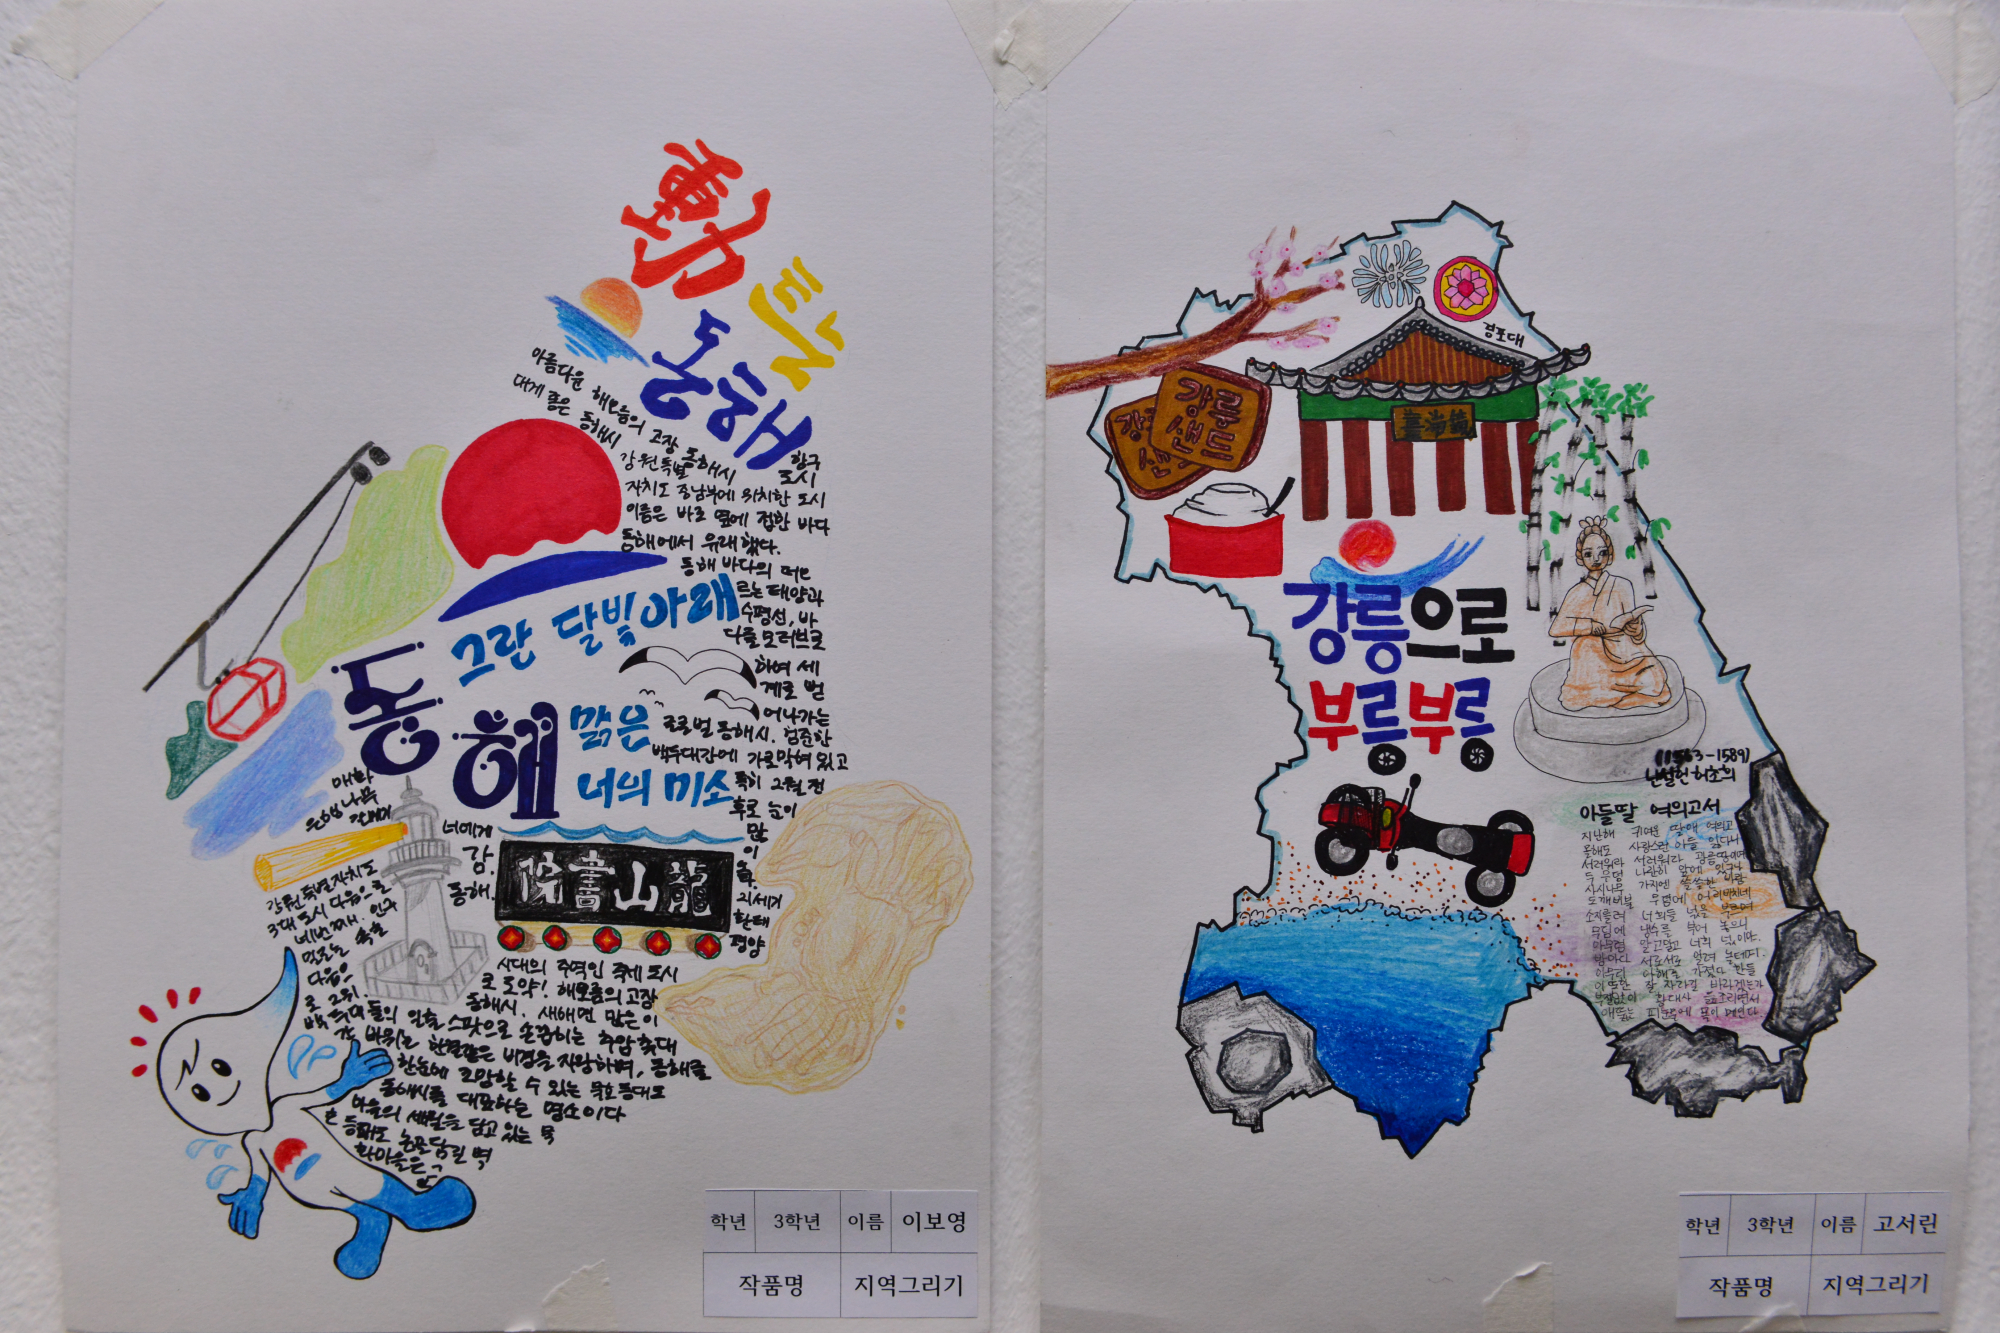 動
트는
동해
아름다운 해오름의 고장 동해시
대게 좋은 동해시
항구
도시
강원특별
자치도 중남부에 위치한 도시
이름은 바로 옆에 접한 바다
동해에서 유래했다.
동해 바다의 떠오
르는 태양과
수평선, 바
다를 모티브로
하여 세
계로 뻗
어나가는
글로벌 동해시. 험준한
백두대간에 가로막혀 있고
특히 2월 전
후로 눈이
많
이
그란 달빛아래
동해
맑은
너의 미소
매화
은행나무
갈매기
너에게
감.
동해.
龍山書院
21세기
환태
평양
시대의 주역인 국제 도시
로 도약! 해오름의 고장
동해시. 새해엔 많은 이
들의 일출 스팟으로 손꼽히는 추암 촛대
바위는 한결같은 비경을 자랑하며, 동해를
한눈에 조망할 수 있는 묵호등대도
동해시를 대표하는 명소이다
마을의 세월을 담고 있는 묵
호 등대도 논골담길 벽
화마을은
강원특별자치도
3대 도시 다음으로
네번째. 인구
밀도는 속초
다음으
로 2위.
학년 3학년 이름 이보영
작품명 지역그리기
경포대
강릉
샌드
강
샌
鏡浦臺
강릉으로
부릉부릉
(1563-1589)
난설헌 허초희
아들딸 여의고서
지난해 귀여운 딸애 여의고
올해도 사랑스런 아들 잃다니
서러워라 서러워라 광릉땅이여
두 무덤 나란히 앞에 있구나
사시나무 가지엔 쓸쓸한 바람
도깨비불 무덤에 어리비치네
소지올려 너희들 넋을 부르며
무덤에 냉수를 부어 놓으니
아무렴 알고말고 너희 넋이야
밤마다 서로서로 얼려 놀테지
아무리 아해를 가졌다 한들
이 또한 잘 자라길 바라겠는가
부질없이 황대사 읊조리면서
애끓는 피눈물에 목이 메인다
학년 3학년 이름 고서린
작품명 지역그리기